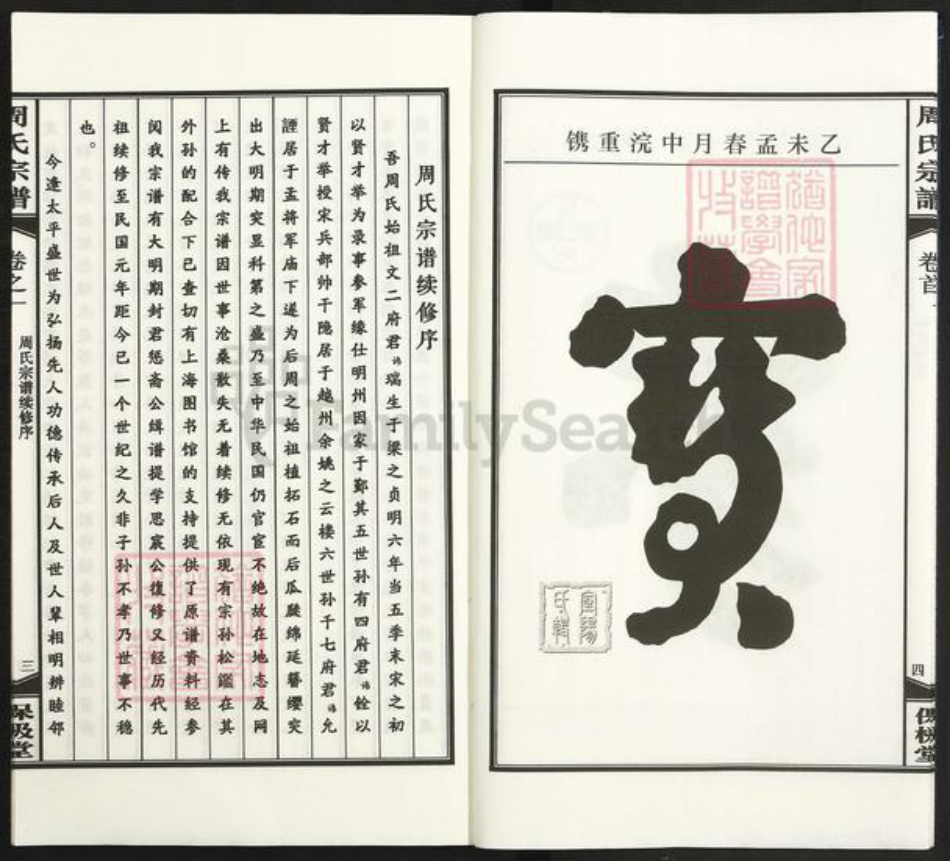 周氏宗譜
卷首
四
乙未孟春月中浣重镌
寶
周氏宗谱续修序
吾周氏始祖文二府君讳瑞生于梁之贞明六年当五季末宋之初
以贤才举为录事参军缘仕明州因家于鄞其五世孙有四府君讳铨以
贤才举授宋兵部帅干隐居于越州余姚之云楼六世孙千七府君讳允
諲居于孟将军庙下遂为后周之始祖植拓石而后瓜瓞绵延簪缨突
出大明期突显科第之盛乃至中华民国仍官宦不绝故在地志及网
上有传我宗谱因世事沧桑散失无着续修无依现有宗孙松鑑在其
外孙的配合下已查切有上海图书馆的支持提供了原谱资料经参
阅我宗谱有大明期封君斋公缉谱提学思宸公復修又经历代先
祖续修至民国元年距今已一个世纪之久非子孙不孝乃世事不稳
也。
今逢太平盛世为弘扬先人功德传承后人及世人辈相明辨睦邻
周氏宗谱
卷之一
周氏宗谱续修序
三
保极堂
FamilySearch